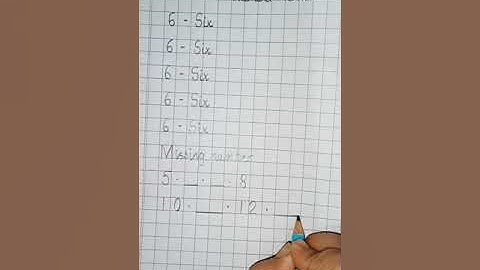 6 - Six
6 - Six
6 - Six
6 - Six
6 - Six
Missing number
5 . __ . __ . 8
10 . __ . 12 . __